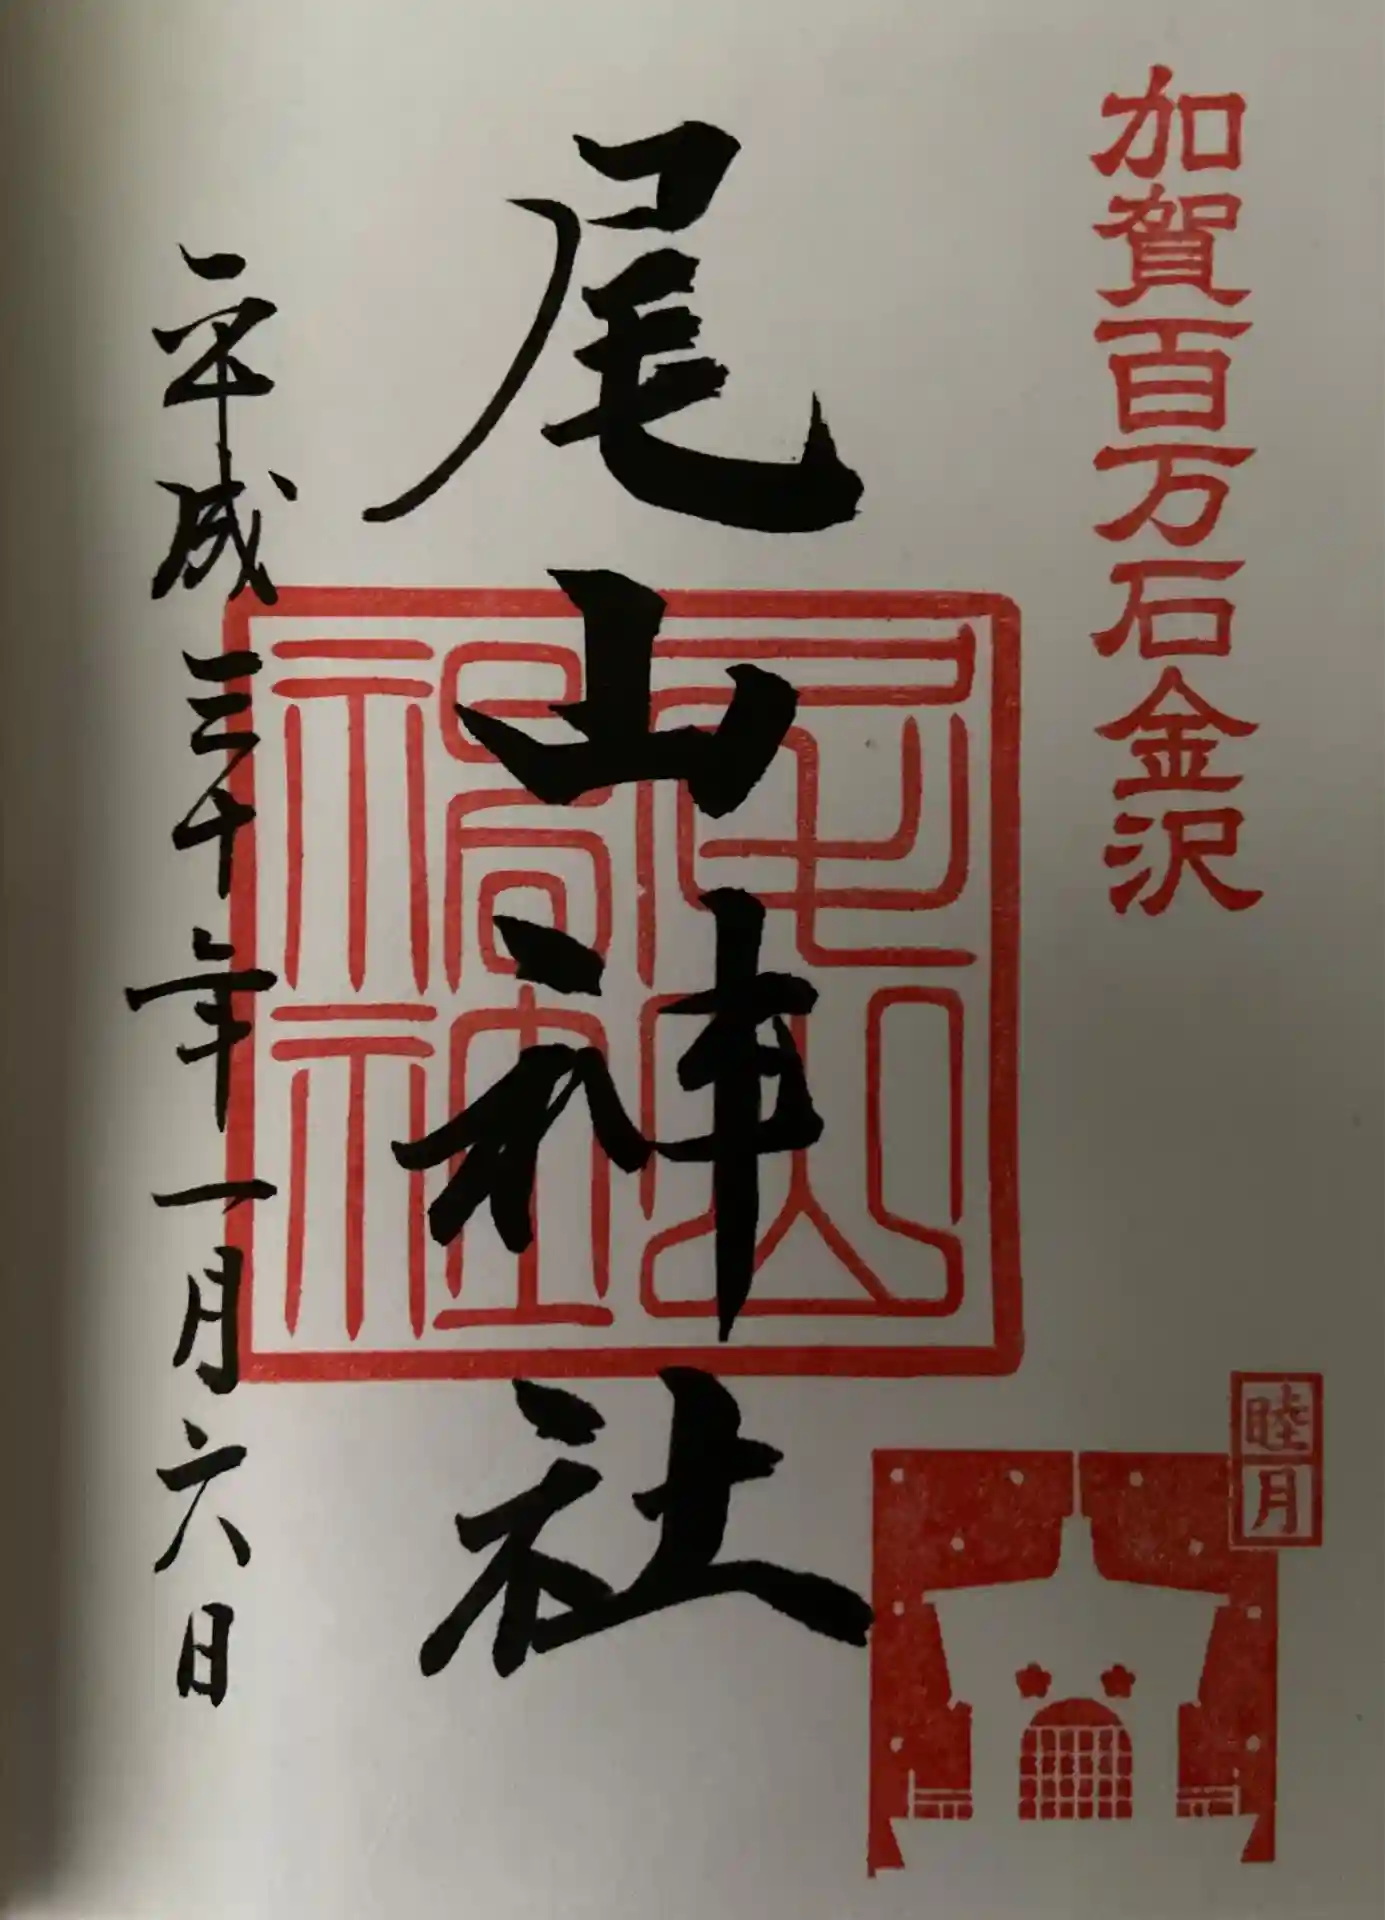 加賀百万石金沢
尾山神社
尾山神社
平成三十年一月六日
睦月